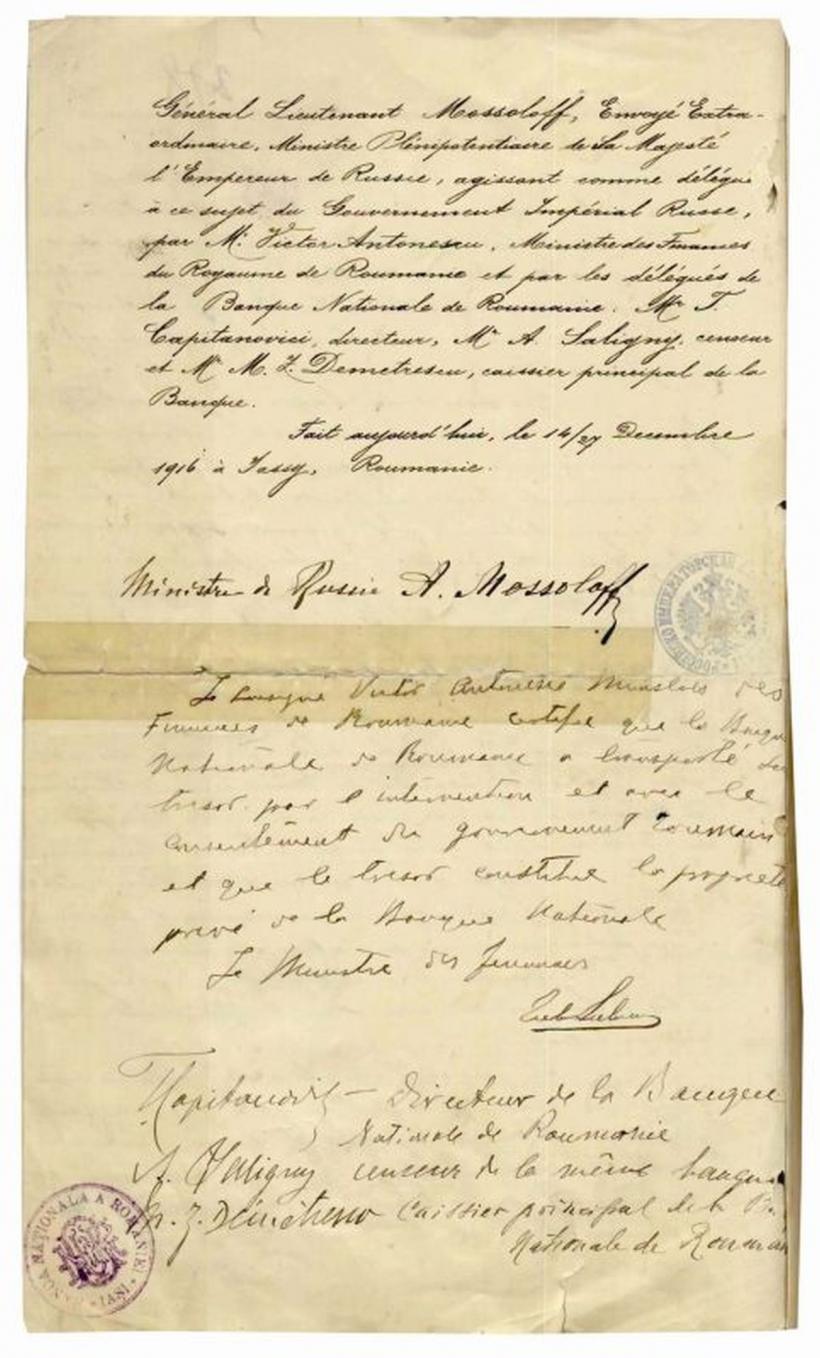 Général Lieutenant Mossoloff, Envoyé Extra-
ordinaire, Ministre Plénipotentiaire de Sa Majesté
l'Empereur de Russie, agissant comme délégué
à ce sujet du Gouvernement Impérial Russe,
par Mr Victor Antonescu, Ministre des Finances
du Royaume de Roumanie et par les délégués de
la Banque Nationale de Roumanie: Mr T.
Capitanovici, directeur, Mr A. Saligny, censeur
et Mr M. Z. Demetrescu, caissier principal de la
Banque.
Fait aujourd'hui, le 14/27 Decembre
1916 à Jassy, Roumanie.
Ministre de Russie A. Mossoloff
Victor Antonescu Ministre des
Finances de Roumanie certifie que la Banque
Nationale de Roumanie a transporté
tresor par l'intervention et avec le
consentement du gouvernement roumain
et que le tresor constitue la propriété
privé de la Banque Nationale
Le Ministre des finances
Directeur de la Banque
Nationale de Roumanie
A. Saligny censeur de la même banque
M. Z. Demetrescu Caissier principal de la
Nationale de Rouman
BANCA NATIONALA A ROMANIEI
IASI